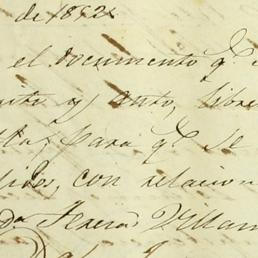 de 1862.
el documento q.e
y auto, libre
para q.e se
con relacion
D.a Teresa Villam